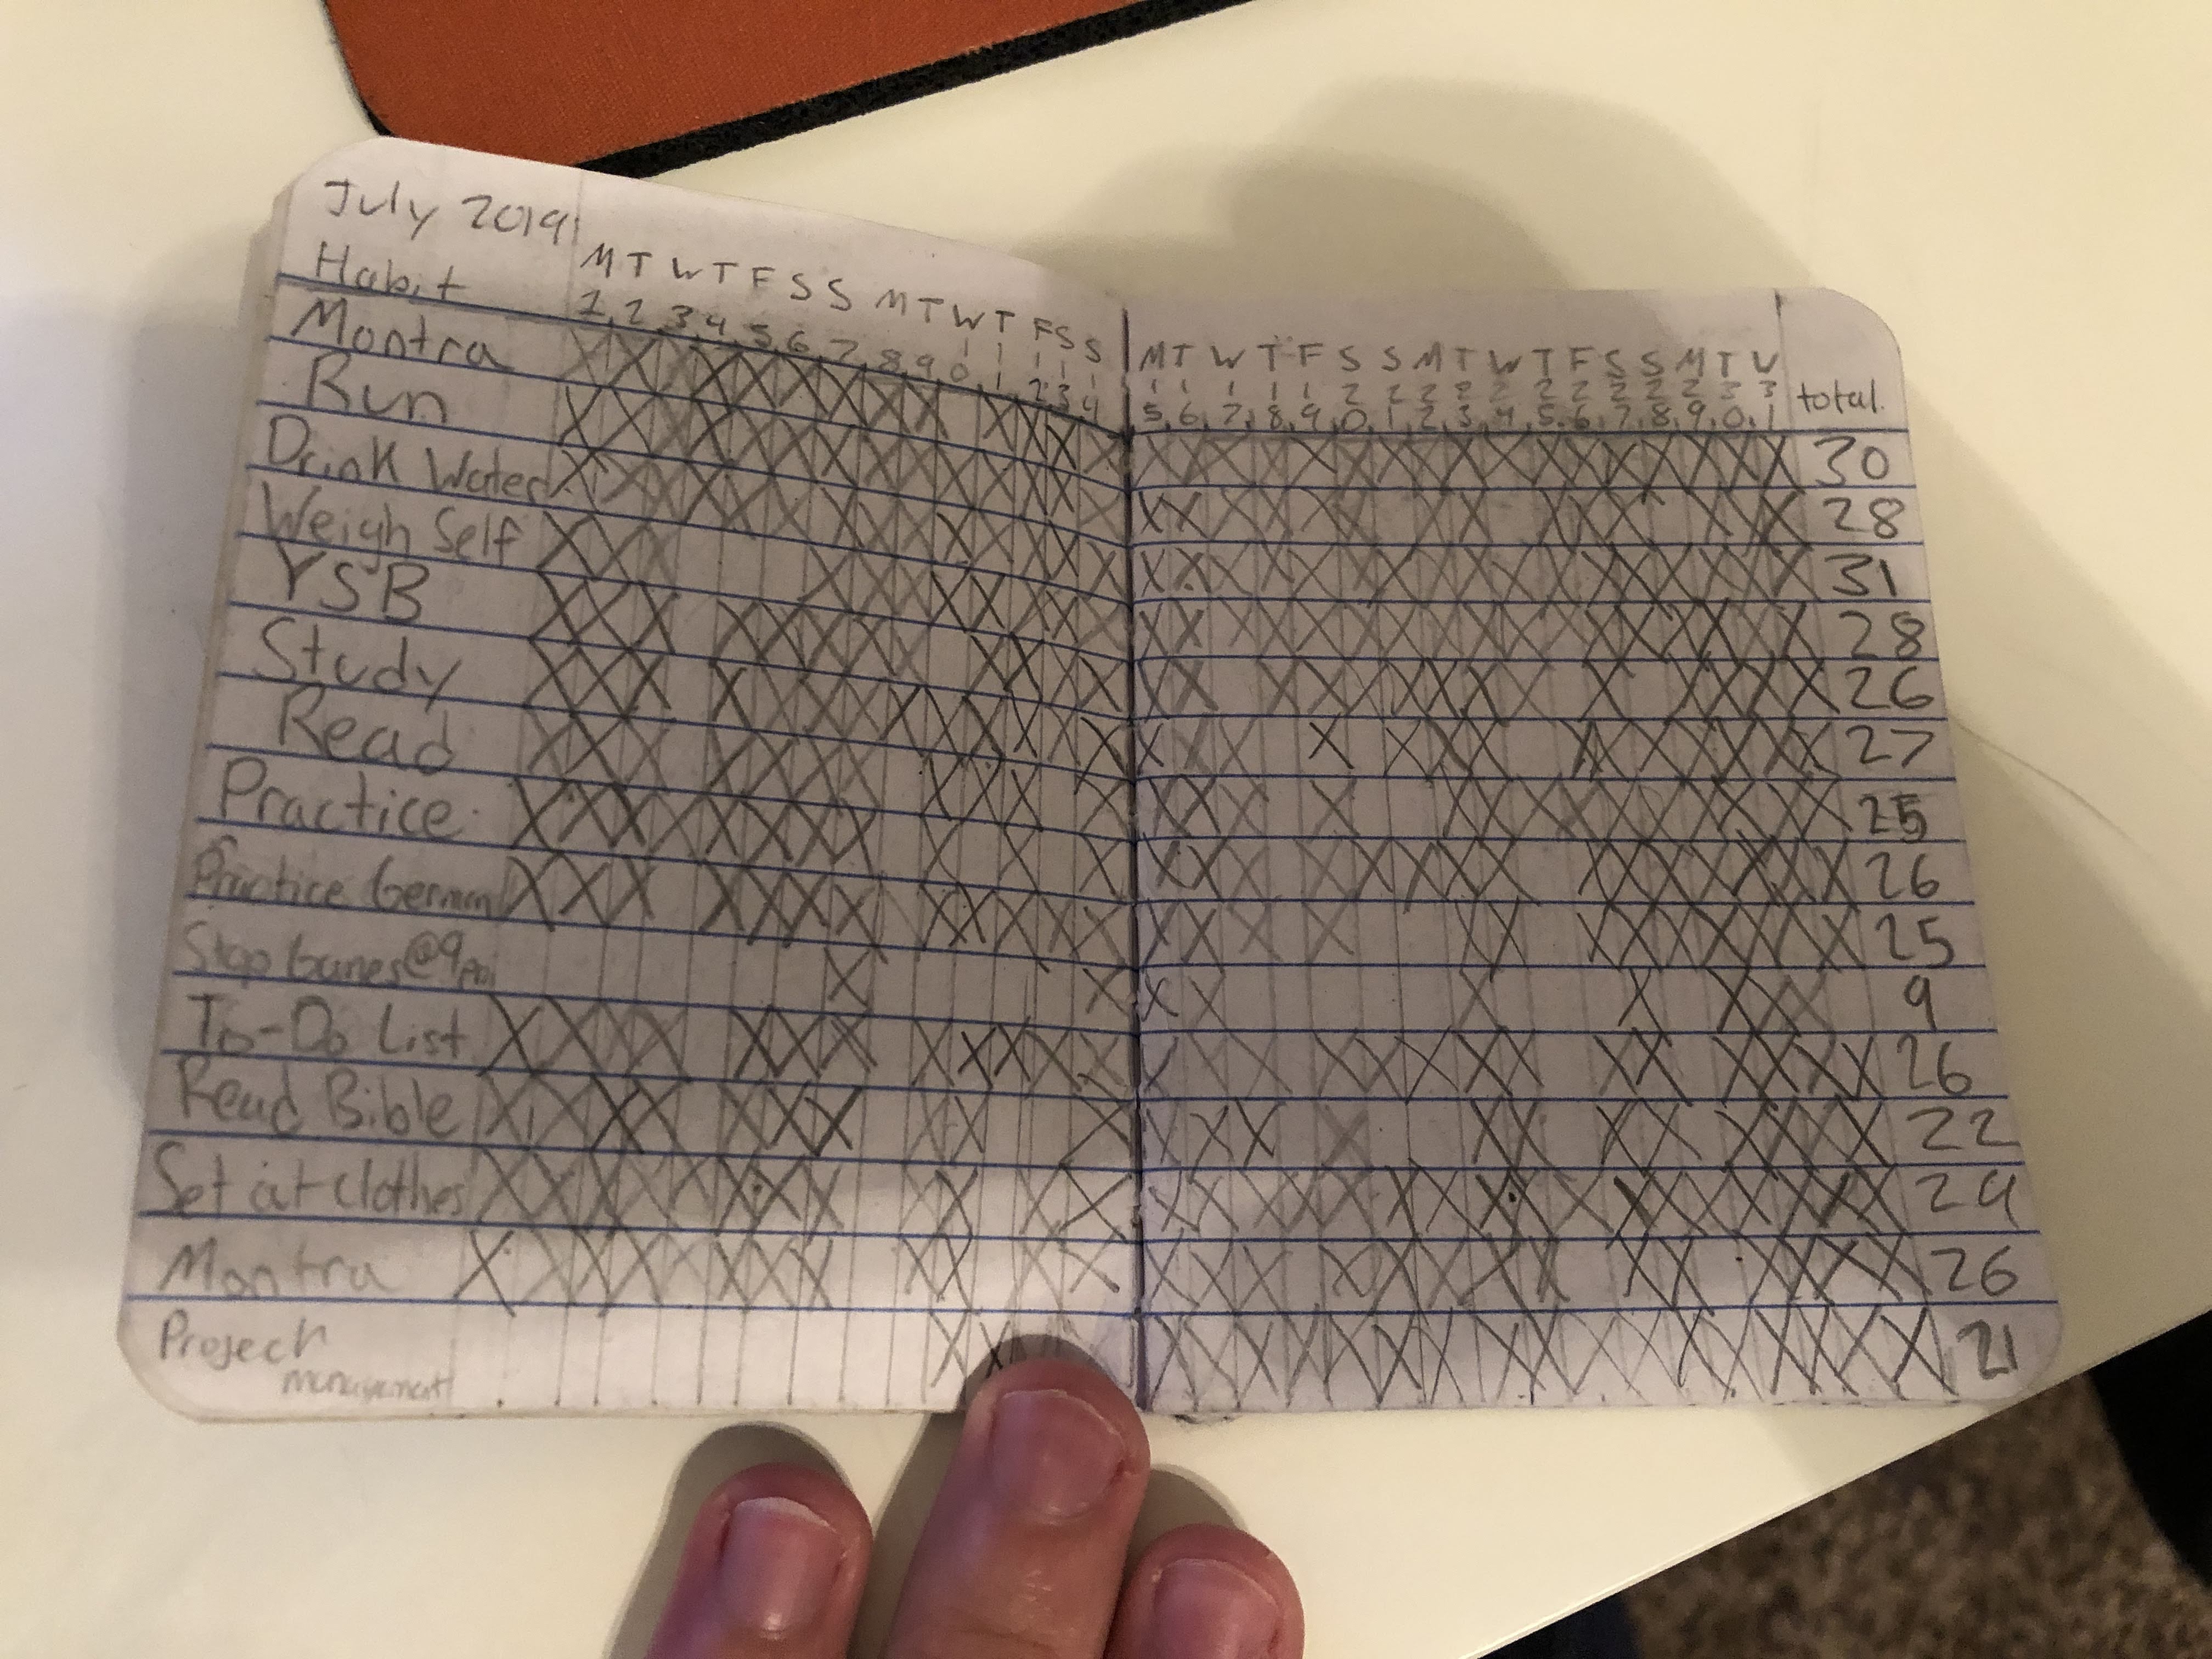 July 2019
M T W T F S S M T W T F S S M T W T F S S M T W T F S S M T W total.
Habit 1 2 3 4 5 6 7 8 9 10 11 12 13 14 15 16 17 18 19 20 21 22 23 24 25 26 27 28 29 30 31
Montra X X X X X X X X X X X X X X X X X X X X X X X X X X X X X X 30
Run 28
Drink Water 31
Weigh Self 28
YSB 26
Study 27
Read 25
Practice 26
Practice German 25
Stop Games@9pm 9
To-Do List 26
Read Bible 22
Set out clothes 29
Montra 26
Project 21
management